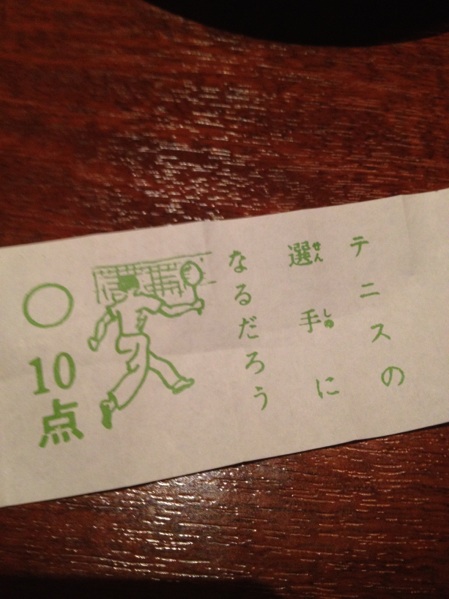 テニスの
選手に
せんしゅ
なるだろう
○
10
点